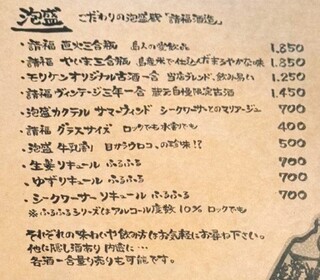 泡盛 こだわりの泡盛蔵「請福酒造」
・請福 直火三合瓶 島人の常飲品 1,350
・請福 やいま三合瓶 島産米で仕込んだまろやかな味 1,350
・モリケンオリジナル古酒一合 当店ブレンド、飲み易い 1,250
・請福 ヴィンテージ三年一合 蔵元自慢限定古酒 1,450
・泡盛カクテル サマーウィンド シークワーサーとのマリアージュ 700
・請福 グラスサイズ ロックでも水割りでも 400
・泡盛 牛乳割り 目からウロコ、の珍味!? 500
・生姜リキュール ふるふる 700
・ゆずリキュール ふるふる 700
・シークワーサーリキュール ふるふる 700
※ふるふるシリーズはアルコール度数10% ロックでも
それぞれの味わいや飲み方はお気軽にお尋ね下さい。
他に隠し酒あり 内密に…
各酒一合量り売りも可能です。